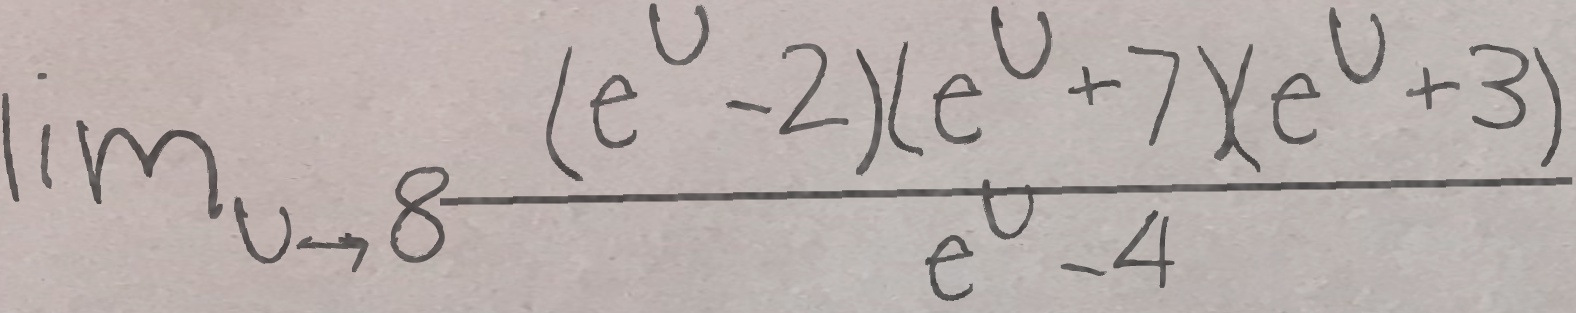 \lim_{u \to 8} \frac{(e^u - 2)(e^u + 7)(e^u + 3)}{e^u - 4}